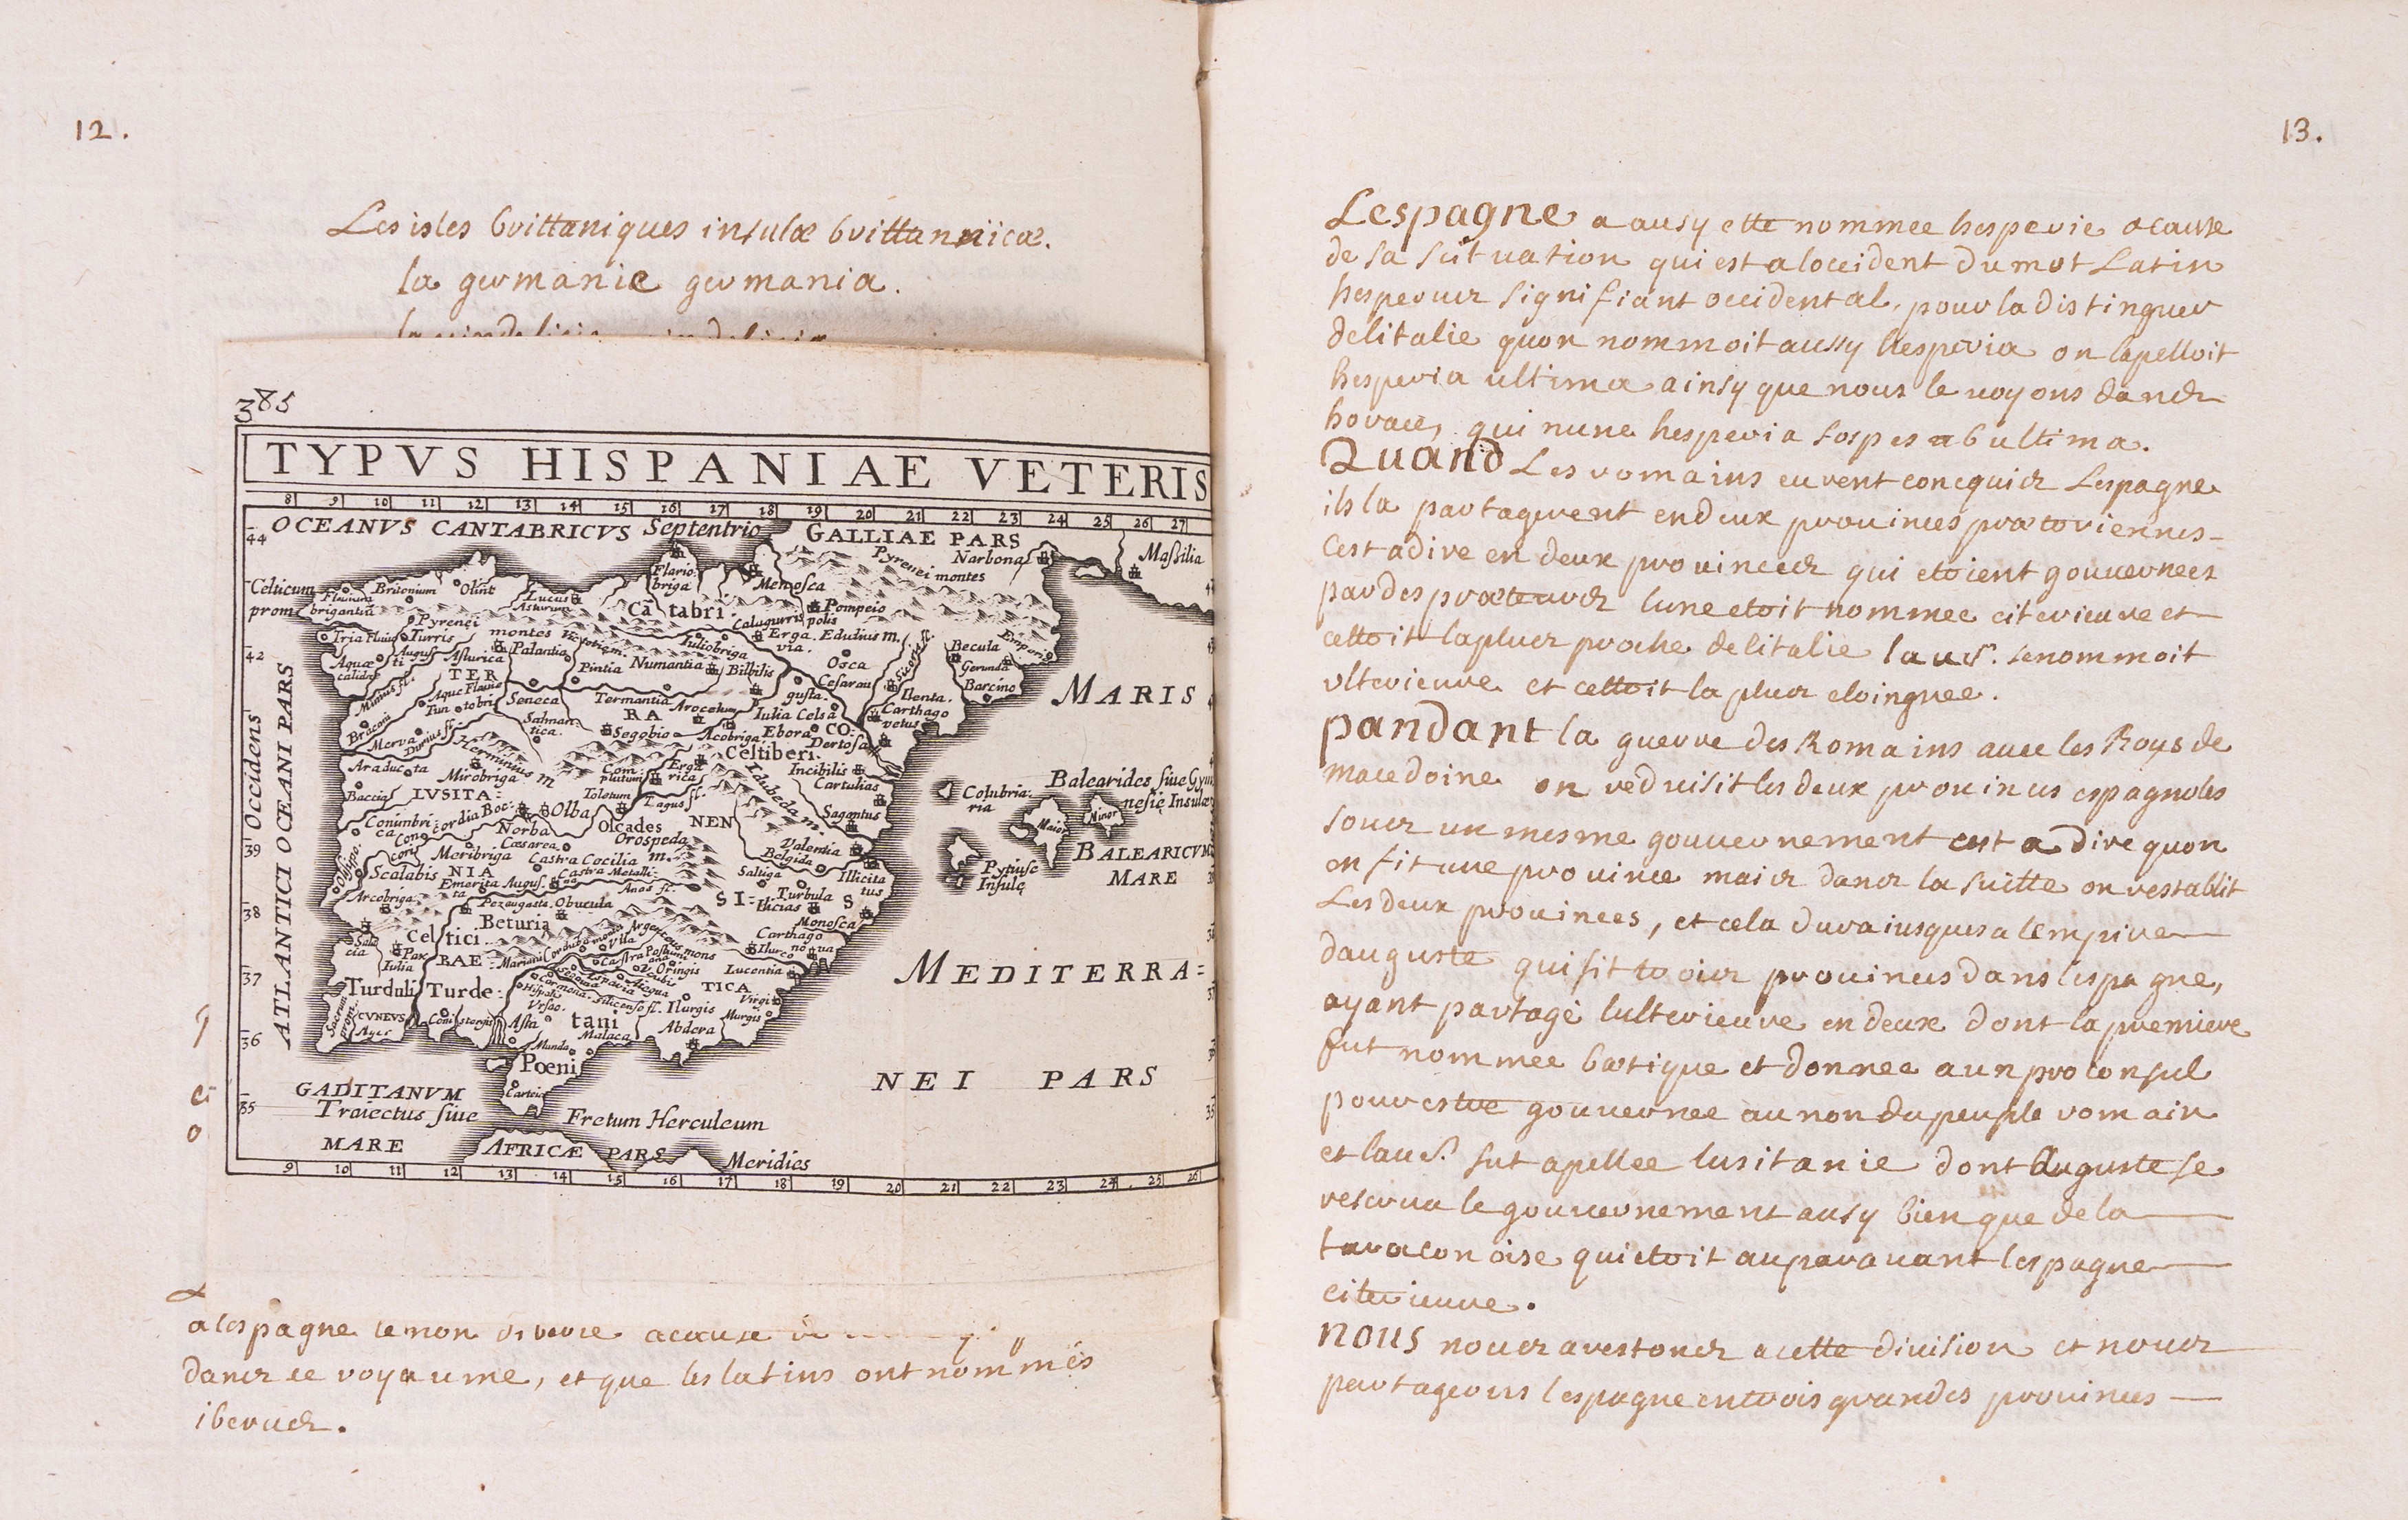 12.
Les isles brittaniques insulæ brittannicæ.
la germanie germania.
385
TYPVS HISPANIAE VETERIS
8 9 10 11 12 13 14 15 16 17 18 19 20 21 22 23 24 25 26 27
OCEANVS CANTABRICVS Septentrio GALLIAE PARS
Pyrenei montes Narbona Maßilia
Celticum prom
Flavium brigantium Britonium Olint Lucus Asturum
Flavio briga Menosca
Cãtabri Calugurris Pompeio polis
Pyrenei montes
Tria Flavia Turris Augusti Asturica Palantia Pintia Numantia Iuliobriga Bilbilis
Erga via. Edulius m. Osca Cesarau gusta. Sicoris fl. Becula Gerunda Empori
Aquæ calidæ Minius fl.
TER RA CO NEN SI S
Aque Flavie Tun tobri Seneca Termantia Arocelum Iulia Celsa Ilenta. Carthago vetus Barcino
MARIS
Occidens
ATLANTICI OCEANI PARS
Merva Durius fl. Salman tica. Segobia Acobriga Ebora Dertosa
Celtiberi.
Herminius m
Araducta Mirobriga Com plutum Erga rica Incibilis Cartulias
Idubeda m.
Colubria ria Balearides, siue Gym nesię Insulæ
Maior Minor
Baccia LVSITA NIA Toletum Tagus fl. Olba Sagontus
Conimbri ca Norba Cæsarea Olcades Orospeda m.
Valentia Belgida
BALEARICVM MARE
Pytiuse Insulę
Olisipo. Scalabis Meribriga Castra Cæcilia Castra Metalli
Saltiga Illicita tus
Arcobriga Emerita August. Anas fl. Turbula Ilicias
Pezaugasta. Obucula
Beturia Monosca
Celtici Argenteus mons Carthago no ua
Sala cia Pax Iulia BAE TICA Mariani Vlia Castra Postumi ana Oringis Ilurco Lucentia
MEDITERRA=
Turduli Turde tani
Hispalis Carmona. Ilurgis Virgi
Sacrum prom. CVNEVS Ager Asta Vrsao. Malaca Abdera Murgis
Munda
Poeni
Carteia
NEI PARS
GADITANVM
Traiectus siue Fretum Herculeum
MARE AFRICÆ PARS Meridies
9 10 11 12 13 14 15 16 17 18 19 20 21 22 23 24 25 26
a lespagne le non acause
dans ce royaume, et que les latins ont nommés
iberus.
13.
Lespagne a ausy ette nommee hesperie acause
de sa scituation qui est a loccident du mot Latin
hesperus signifiant occidental, pour la distinguer
delitalie quon nommoit aussy hesperia on lapelloit
hesperia ultima ainsy que nous le voyons dans
horace, qui nunc hesperia sospes ab ultima.
Quand Les romains eurent concquis Lespagne
ils la partagerent en deux prouinces prætoriennes
Cest adire en deux prouinces qui etoient gouuernees
par des præteurs lune etoit nommee citerieure et
cettoit la plus proche delitalie lauṭ. se nommoit
vlterieure et cettoit la plus eloingnee.
pandant la guerre des Romains auec les Roys de
macedoine on reduisit les deux prouinces espagnoles
sous un mesme gouuernement cest adire quon
en fit une prouince mais dans la suitte on restablit
Les deux prouinces, et cela dura iusques a lempire
dauguste qui fit trois prouinces dans lespagne,
ayant partagé lulterieure en deux dont la premiere
fut nommee bætique et donnee a un proconsul
pour estre gouuernee au non du peuple romain
et laut. fut apellee lusitanie dont Auguste se
reserua le gouuernement ausy bien que de la
taraconoise qui etoit auparauant lespagne
citerieure.
nous nous arestons a cette diuision et nous
partageons lespagne en trois grandes prouinces